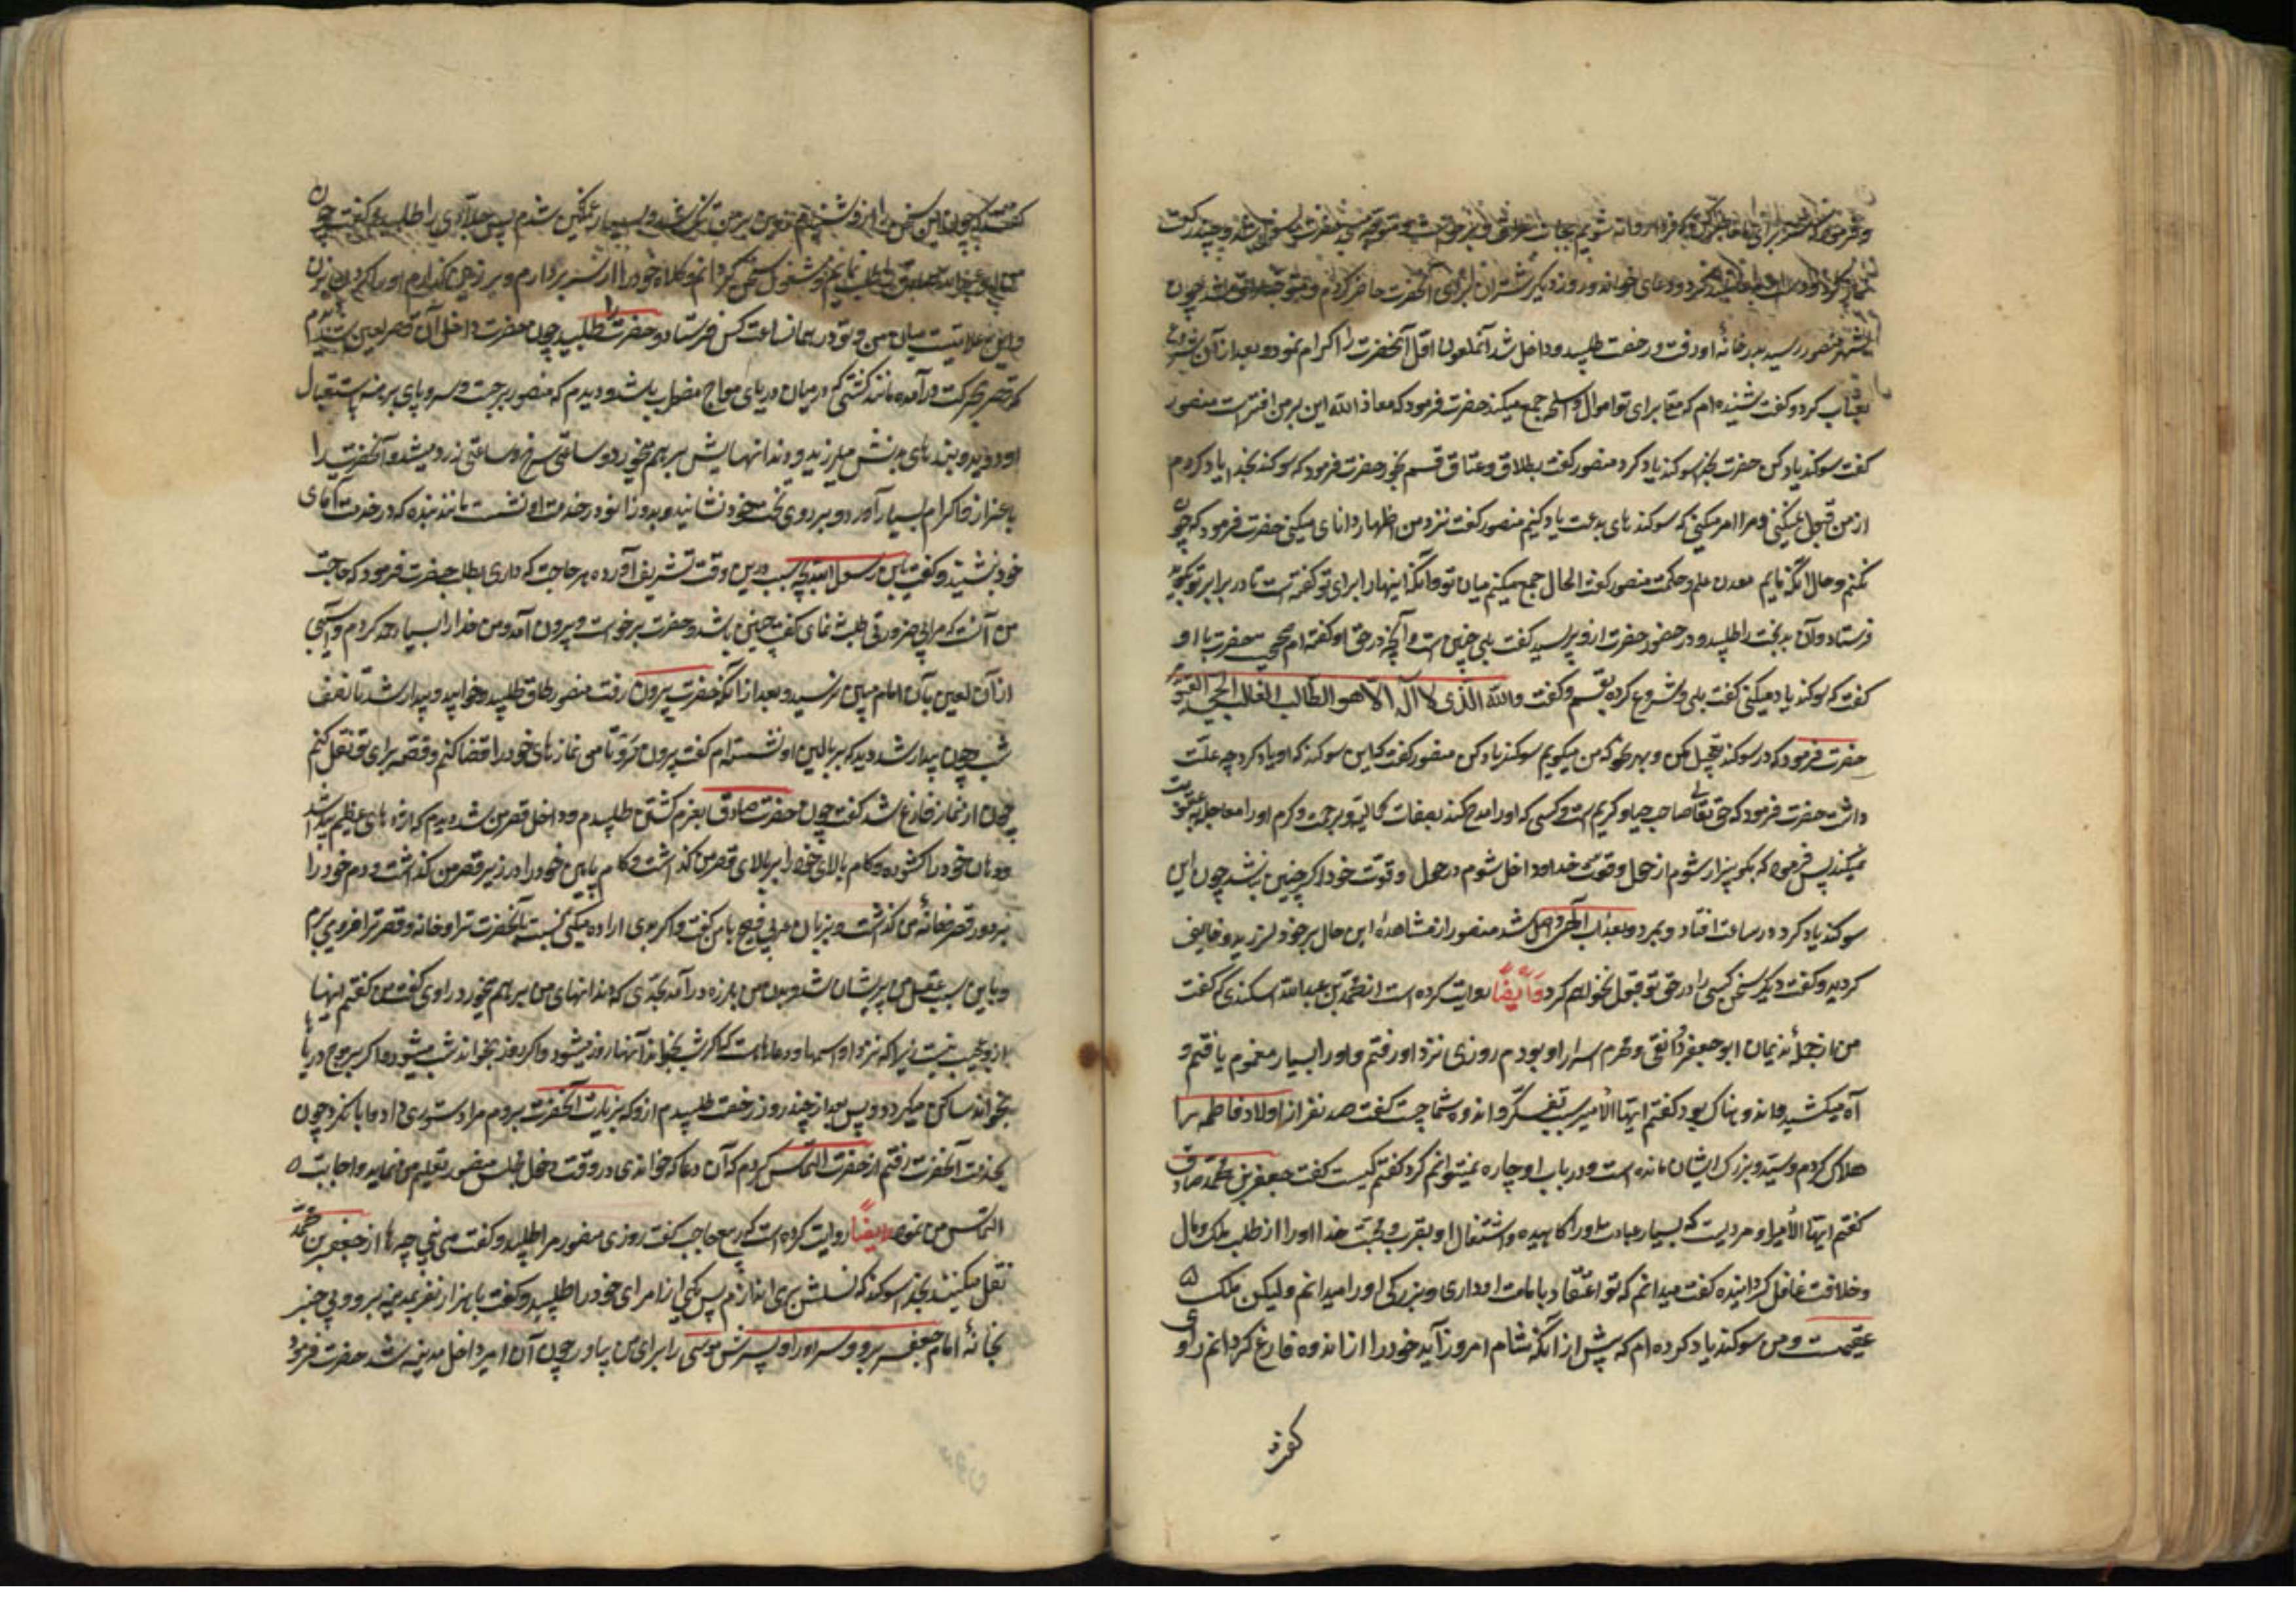 و فرمود که شتر برای ما
نماز کرد و دست بدعا بلند کرد و دعای خواند و روز دیگر شتران برای آنحضرت حاضر کردم و متوجه عراق شد چون
بشهر منصور رسید بدر خانهٔ او رفت و رخصت طلبید و داخل شد آنملعون اول آنحضرت را اکرام نمود و بعد از آن شروع
بعتاب کرد و گفت شنیده ام که معلا برای تو اموال و اسلحه جمع میکند حضرت فرمود که معاذ الله این بر من افتراست منصور
گفت سوکند یاد کن حضرت بخدا سوکند یاد کرد منصور گفت بطلاق و عتاق قسم بخور حضرت فرمود که سوکند بخدا یاد کردم
از من قبول نمیکنی و مرا امر میکنی که سوکند های بدعت یاد کنم منصور گفت نزد من اظهار دانای میکنی حضرت فرمود که چون
نکنم و حال آنکه مائیم معدن علم و حکمت منصور گفت الحال جمع میکنم میان تو و آنکه اینها را برای تو گفته است تا در برابر تو بگوید
فرستاد و آن بدبخت را طلبید و در حضور حضرت ازو پرسید گفت بلی چنین است و آنچه در حق او گفته ام صحیح حضرت با او
گفت که سوکند یاد میکنی گفت بلی و شروع کرد بقسم و گفت والله الذی لا اله الا هو الطالب الغالب الحی القیوم
حضرت فرمود که در سوکند تعجیل مکن و بهر نحو که من میگویم سوکند یاد کن منصور گفت که این سوکند که او یاد کرد چه علت
داشت حضرت فرمود که حق تعالی صاحب حیا و کریم است و کسی که او را مدح کند بصفات کمالیه و برحمت و کرم او را معاجله بعقوبت
نمیکند پس فرمود که بگو بیزار شوم از حول و قوت خدا و داخل شوم در حول و قوت خود اگر چنین نباشد چون این
سوکند یاد کرد در ساعت افتاد و بمرد و بعذاب الهی واصل شد منصور از مشاهدهٔ این حال بر خود لرزید و خایف
کردید و گفت دیگر سخن کسی را در حق تو قبول نخواهم کرد وایضًا روایت کرده است از محمد بن عبدالله اسکندری که گفت
من از جملهٔ ندیمان ابو جعفر دوانقی و محرم اسرار او بودم روزی نزد او رفتم و او را بسیار مغموم یافتم و
آه میکشید و اندوهناک بود گفتم ایها الامیر سبب تفکر و اندوه شما چیست گفت صد نفر از اولاد فاطمه را
هلاک کردم و سید و بزرک ایشان مانده است و در باب او چاره نمیتوانم کرد گفتم کیست گفت جعفر بن محمد صادق
گفتم ایها الامیر او مردیست که بسیار عبادت او را کاهیده و اشتغال او بقرب و محبت خدا او را از طلب ملک و مال
و خلافت غافل گردانیده گفت میدانم که تو اعتقاد بامامت او داری و بزرکی او را میدانم ولیکن ملک
عقیمست و من سوکند یاد کرده ام که پیش از آنکه شام امروز آید خود را از اندوه فارغ گردانم راوی
گفت
گفت که چون این سخن را ازو شنیدم زمین بر من تنگ شد و بسیار غمگین شدم پس جلادی را طلبید و گفت چون
من ابو عبدالله صادق را طلب نمایم و مشغول سخن گردانم و کلاه خود را از سر بردارم و بر زمین گذارم او را گردن بزن
و این علامتیست میان من و تو در همان ساعت کس فرستاد و حضرت را طلبید چون حضرت داخل آن قصر لعین شد دیدم
که قصر بحرکت درآمده مانند کشتی که در میان دریای مواج مضطرب باشد و دیدم که منصور برجست و سر و پای برهنه باستقبال
او دوید و بند های بدنش میلرزید و دندانهایش برهم میخورد و ساعتی سرخ و ساعتی زرد میشد و آنحضرت را
باعزاز و اکرام بسیار آورد و بر روی تخت خود نشانید و بدو زانو در خدمت او نشست مانند بنده که در خدمت آقای
خود بنشیند و گفت یابن رسول الله بچه سبب درین وقت تشریف آورده هر حاجت که داری بطلب حضرت فرمود که حاجت
من آنست که مرا بی ضرورتی طلب ننمای گفت چنین باشد و حضرت برخواست و بیرون آمد و من خدا را بسیار حمد کردم که آسیبی
از آن لعین بآن امام مبین نرسید و بعد از آنکه حضرت بیرون رفت منصور لحاف طلبید و خوابید و بیدار نشد تا نصف
شب چون بیدار شد دید که بر بالین او نشسته ام گفت بیرون مرو تا من نماز های خود را قضا کنم و قصهٔ برای تو نقل کنم
چون از نماز فارغ شد گفت چون حضرت صادق بعزم کشتن طلبیدم و داخل قصر من شد دیدم که اژدهای عظیم پیدا شد
و دهان خود را گشوده و کام بالای خود را بر بالای قصر من گذاشت و کام پایین خود را در زیر قصر من گذاشت و دم خود را
بر دور قصر و خانهٔ من گذاشت و بزبان عربی فصیح با من گفت اگر بدی اراده میکنی نسبت بآنحضرت ترا و خانه و قصر ترا فرو میبرم
و باین سبب عقل من پریشان شد و بدن من بلرزه درآمد بحدی که دندانهای من بر هم میخورد راوی گفت من گفتم اینها
ازو عجیب نیست زیرا که نزد او اسمها و دعاهاست که اگر بر شب بخواند آنها روز میشود و اگر بر روز بخواند شب میشود و اگر بر موج دریاها
بخواند ساکن میگردد و پس بعد از چند روز رخصت طلبیدم ازو که بزیارت آنحضرت بروم مرا دستوری داد و ابا نکرد چون
بخدمت آنحضرت رفتم از حضرت التماس کردم که آن دعا که خواندی در وقت دخول مجلس منصور تعلیم من نماید و اجابت
التماس من نمود وایضًا روایت کرده است که ربیع حاجب گفت روزی منصور مرا طلبید و گفت می بینی چها از جعفر بن محمد
نقل میکنند بخدا سوکند که نسلش برمی اندازم پس یکی از امرای خود را طلبید و گفت با هزار نفر بمدینه برو و بی خبر
بخانهٔ امام جعفر برو و سر او را و پسرش موسی را برای من بیاور چون آن امیر داخل مدینه شد حضرت فرمود